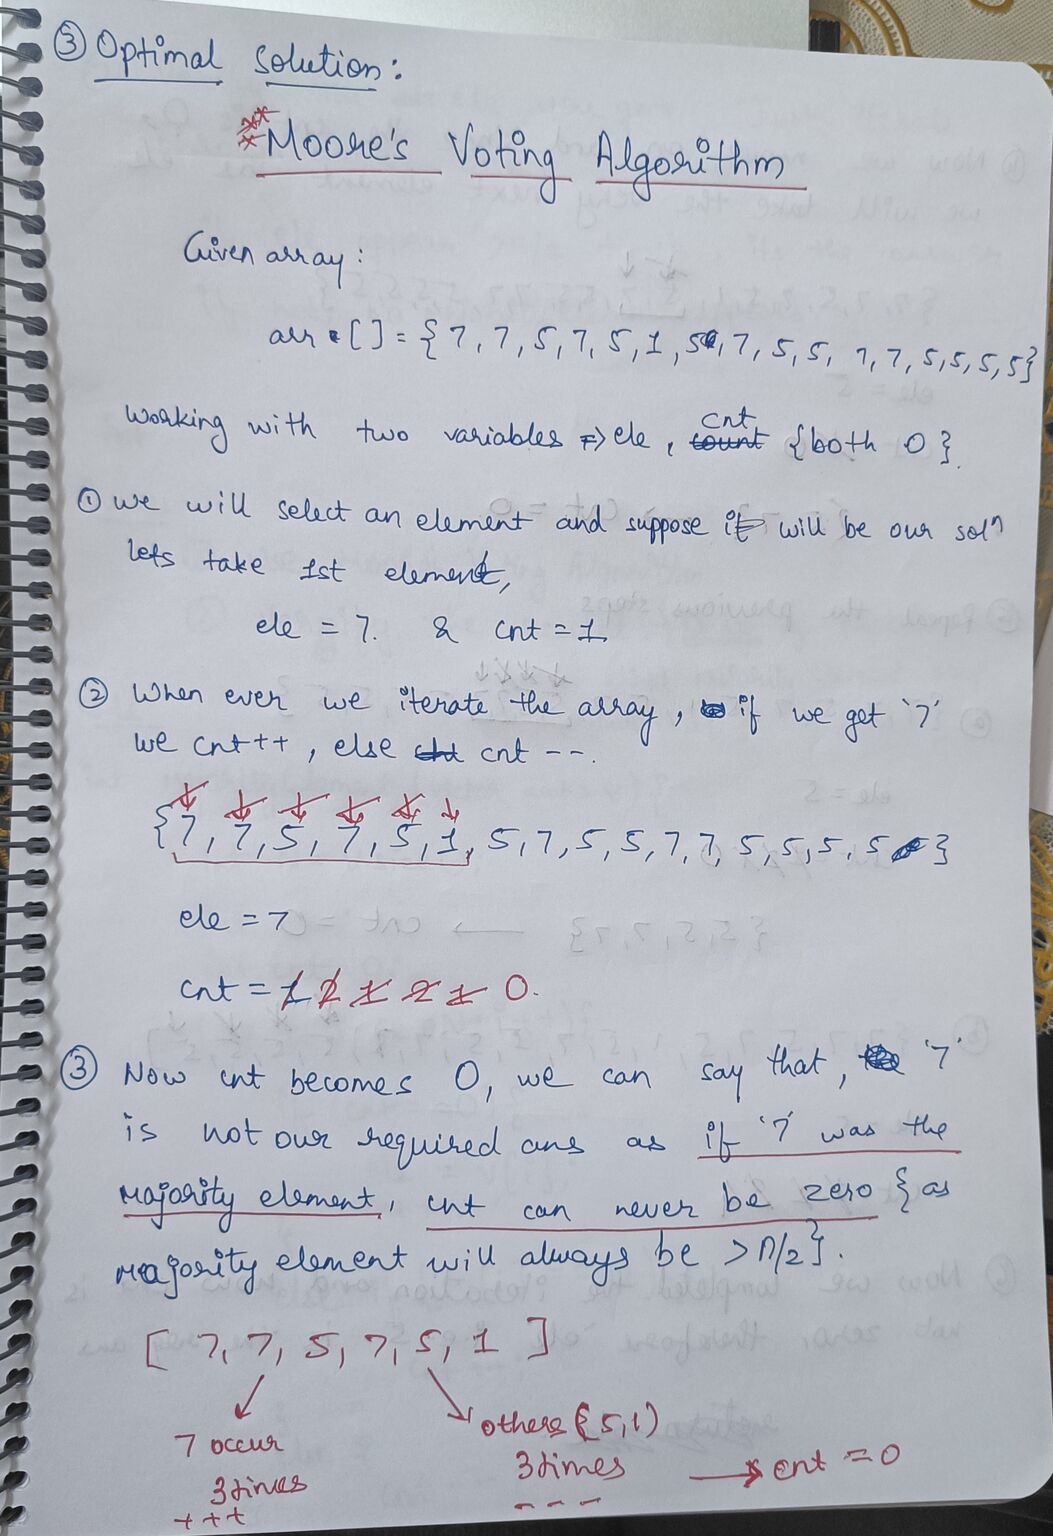 ③ Optimal solution:
*** Moore's Voting Algorithm
Given array:
arr[] = {7, 7, 5, 7, 5, 1, 5, 7, 5, 5, 7, 7, 5, 5, 5, 5}
working with two variables => ele, cnt {both 0}.
① we will select an element and suppose it will be our solⁿ
lets take 1st element,
ele = 7. & cnt = 1
② When ever we iterate the array, if we get '7'
we cnt++, else cnt --.
{7, 7, 5, 7, 5, 1, 5, 7, 5, 5, 7, 7, 5, 5, 5, 5}
ele = 7
cnt = 1 2 1 2 1 0.
③ Now cnt becomes 0, we can say that, '7'
is not our required ans as if '7' was the
majority element, cnt can never be zero {as
majority element will always be > n/2}.
[ 7, 7, 5, 7, 5, 1 ]
7 occur
3times
+ + +
others (5,1)
3times
- - -
→ cnt = 0